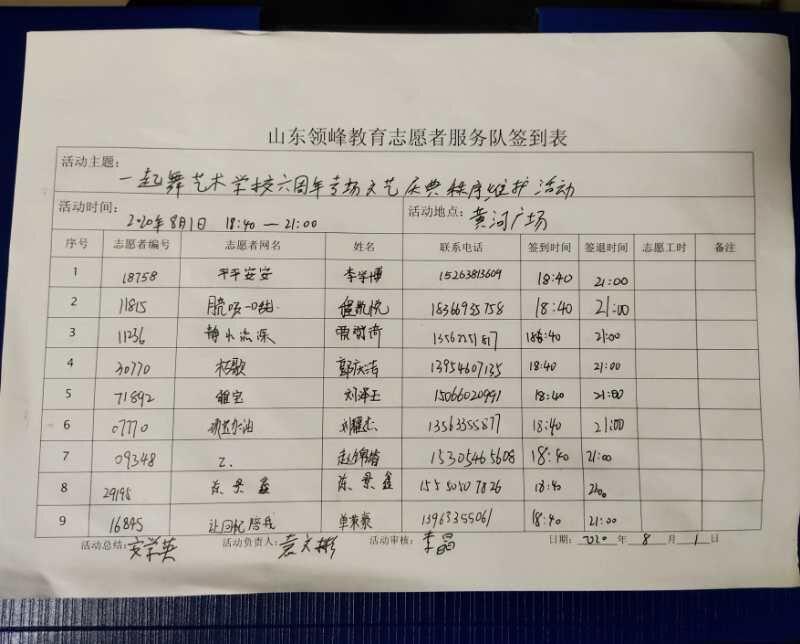 山东领峰教育志愿者服务队签到表
活动主题：
一起舞艺术学校六周年专场文艺庆典秩序维护活动
活动时间： 2020年8月1日 18:40 — 21:00 活动地点： 黄河广场
序号 志愿者编号 志愿者网名 姓名 联系电话 签到时间 签退时间 志愿工时 备注
1 18758 平平安安 李学博 15263813609 18:40 21:00
2 11815 18366935758 18:40 21:00
3 11236 静水流深 18:40 21:00
4 30770 桔歌 郭庆洁 13954607135 18:40 21:00
5 71892 刘泽王 15066020991 18:40 21:00
6 07770 刘耀杰 13563355877 18:40 21:00
7 09348 Z. 15305465608 18:40 21:00
8 29195 陈景鑫 陈景鑫 15550507826 18:40
9 16845 让回忆陪我 单荣豪 13963355061 18:40 21:00
活动总结： 安学英 活动负责人： 袁文彬 活动审核： 李晶 日期： 2020 年 8 月 1 日